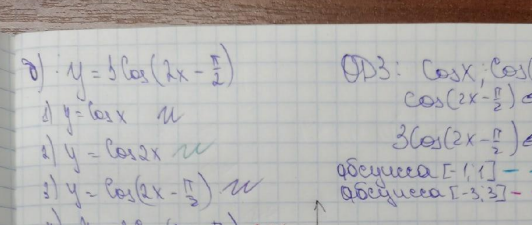 д) y = 3Cos(2x - π/2)
1) y = Cos x
2) y = Cos 2x
3) y = Cos(2x - π/2)
ОДЗ: Cosx; Cos(
Cos(2x - π/2) ∈
3Cos(2x - π/2) ∈
абсцисса [-1; 1] -
абсцисса [-3; 3] -